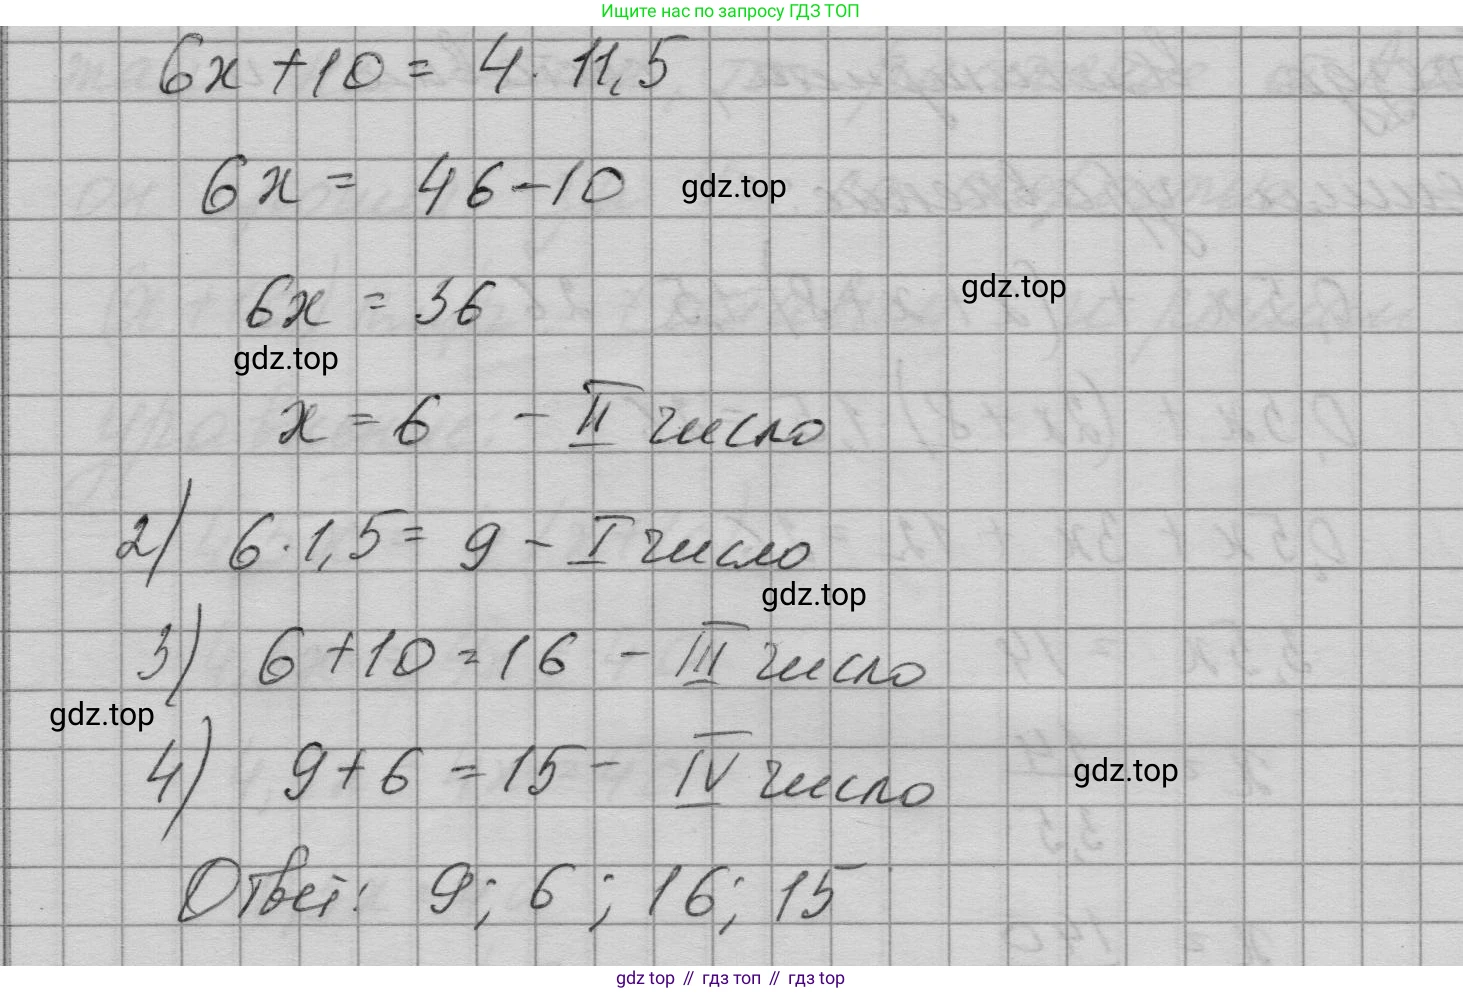 Ищите нас по запросу ГДЗ ТОП
6x + 10 = 4 · 11,5
6x = 46 - 10 gdz.top
gdz.top
6x = 36
gdz.top
x = 6 - II число
2) 6 · 1,5 = 9 - I число
gdz.top
3) 6 + 10 = 16 - III число
gdz.top
4) 9 + 6 = 15 - IV число
gdz.top
Ответ: 9; 6; 16; 15
gdz top // гдз топ // gdz top